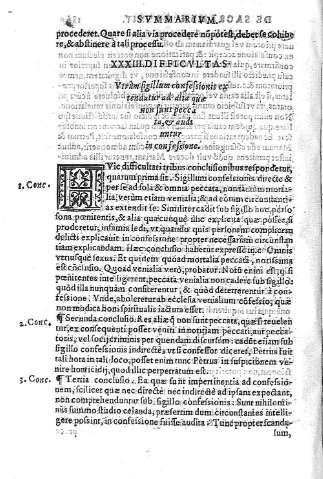 SVMMARIVM,
procederet. Quare si alia via procedere nõ potest, debet se cohibe
re, & abstinere à tali processu.
XXXIII. DIFFICVLTAS.
Vtrùm sigillum confessionis ex
tendatur ad alia quæ
non sunt pecca
ta, & audi
untur
in confessione.
HVic difficultati tribus conclusionibus respondetur,
1. Conc.
quarum prima sit. Sigillum confessionis directè &
per se ad sola & omnia peccata, non tantùm morta-
lia, verùm etiam venialia, & ad eorum circunstanti-
as extendit se. Similiter cadit sub sigillo hoc, perso-
sona pœnitentis, & alia quæcunque illi
proderetur, infamis
delicti explicant in confessione: propter necessariam circunstan
tiam explicandam. Hæc conclusio habetur expressè in c. Omnis
vtriusque sexus. Et quidem quò ad mortalia peccata, notissima
est cnclusio. Quoad venialia verò, probatur.
pœnitentes intelligerent, peccata venialia non cadere sub sigillo:
quòd illa nunquam consiterentur, & quòd deterrerentur à con-
fessione. Vnde, aboleretur ab ecclesia venialium cõfessio, quæ
non modica boni spiritualis iactura esset.
2. Conc.
¶ Secunda conclusio. Res aliæ quæ non sunt peccata, quæ si reuelen
tur, ex consequenti posset veniri in notitiam peccati, aut pecca-
toris, vel
sigillo confessionis indirectè, vt si confessor diceret, Petrus fuit
tali hora in tali loco, posset enim tunc Petrus in suspicionem ve-
nire homicidij, quod illic perpetratum est.
3. Conc.
¶ Tertia conclusio. Ea quæ sunt impertinentia ad confessio-
nem, scilicet quæ nec directè nec indirectè ad ipsam expectant,
non comprehenduntur sub sigillo confessionis: Sunt nihilomi-
nùs summo studio celanda, præsertim dum circunstantes intelli-
gere possint, in confessione fuisse audita: Tunc propter scanda-
lum,